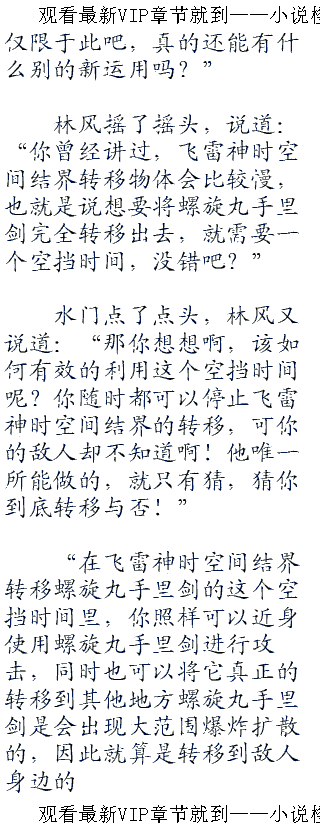 观看最新VIP章节就到——小说检
仅限于此吧，真的还能有什
么别的新运用吗？”
林风摇了摇头，说道：
“你曾经讲过，飞雷神时空
间结界转移物体会比较慢，
也就是说想要将螺旋丸手里
剑完全转移出去，就需要一
个空挡时间，没错吧？”
水门点了点头，林风又
说道：“那你想想啊，该如
何有效的利用这个空挡时间
呢？你随时都可以停止飞雷
神时空间结界的转移，可你
的敌人却不知道啊！他唯一
所能做的，就只有猜，猜你
到底转移与否！”
“在飞雷神时空间结界
转移螺旋丸手里剑的这个空
挡时间里，你照样可以近身
使用螺旋丸手里剑进行攻
击，同时也可以将它真正的
转移到其他地方螺旋丸手里
剑是会出现大范围爆炸扩散
的，因此就算是转移到敌人
身边的
观看最新VIP章节就到——小说检